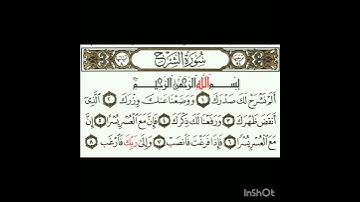 سُورَةُ الشَّرْحِ
بِسْمِ اللَّهِ الرَّحْمَٰنِ الرَّحِيمِ
أَلَمْ نَشْرَحْ لَكَ صَدْرَكَ ١ وَوَضَعْنَا عَنكَ وِزْرَكَ ٢ الَّذِي
أَنقَضَ ظَهْرَكَ ٣ وَرَفَعْنَا لَكَ ذِكْرَكَ ٤ فَإِنَّ مَعَ الْعُسْرِ يُسْرًا ٥ إِنَّ
مَعَ الْعُسْرِ يُسْرًا ٦ فَإِذَا فَرَغْتَ فَانصَبْ ٧ وَإِلَىٰ رَبِّكَ فَارْغَب ٨
InShOt